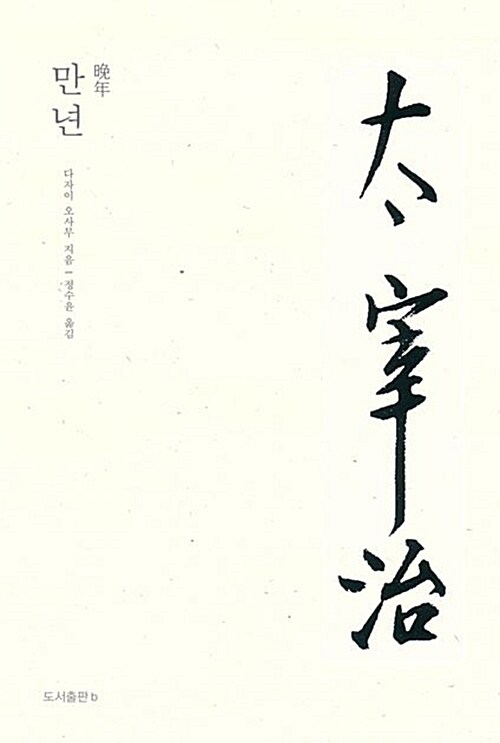 晩年
만년
다자이 오사무 지음 ― 정수윤 옮김
太宰治
도서출판 b